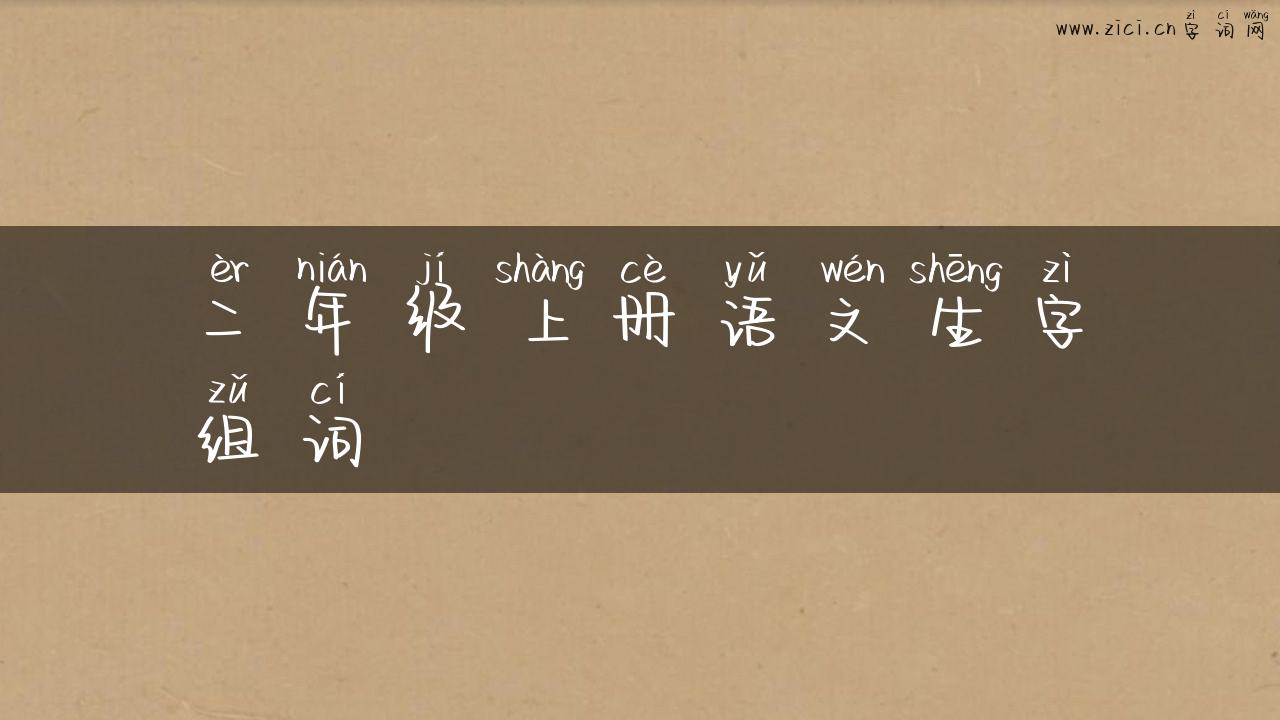 zì cí wǎng
www.zici.cn 字词网
èr nián jí shàng cè yǔ wén shēng zì
二年级上册语文生字
zǔ cí
组词